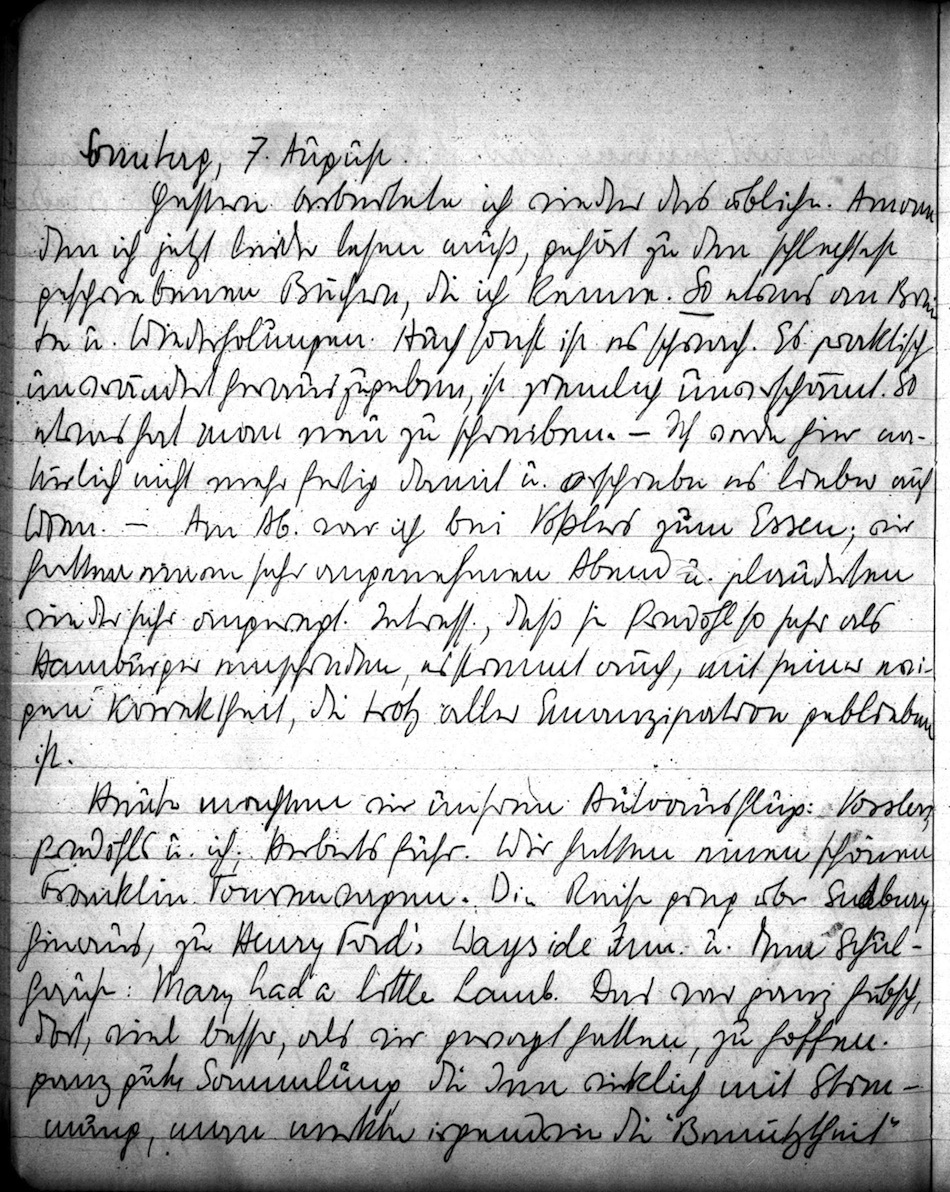 Sonntag, 7 August.
Gestern arbeitete ich wieder das übliche. Amonn
den ich jetzt leider lesen muß, gehört zu den schlechtest
geschriebenen Büchern, die ich kenne. So etwas an Brei-
te u. Wiederholungen. Auch sonst ist es schwach. Es praktisch
unverändert herauszugeben, ist ziemlich unverschämt. So
etwas hat man neu zu schreiben. – Ich werde hier na-
türlich nicht mehr fertig damit u. verschiebe es lieber auf
Wien. – Am Ab. war ich bei Voßlers zum Essen; wir
hatten einen sehr angenehmen Abend u. plauderten
wieder sehr angeregt. Interess., daß sie Predöhl so sehr als
Hamburger empfinden, es stimmt auch, mit seiner
Korrektheit, die trotz aller Emanzipation geblieben
ist.
Heute machten wir unseren Autoausflug: Vosslers,
Predöhls u. ich; Herberts fuhr. Wir hatten einen schönen
Franklin Tourenwagen. Die Reise ging über Sudbury
hinaus, zu Henry Ford's Wayside Inn. u. dem Schul-
haus: Mary had a little Lamb. Das war ganz hübsch,
dort, viel besser, als wir gewagt hatten, zu hoffen.
ganz gute Sammlung, die Inn wirklich mit Stim-
mung, man merkte irgendwie die "Benütztheit"